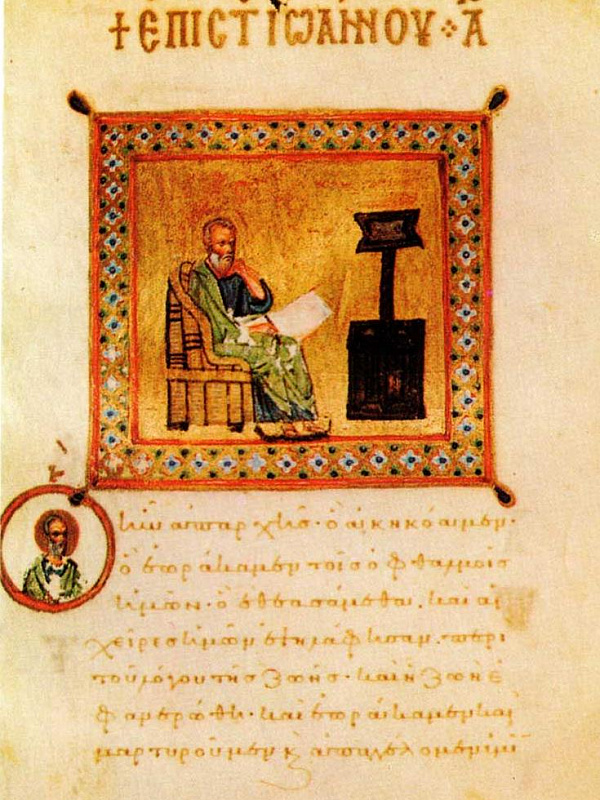 + ΕΠΙCΤ ΙΩΑΝΝΟΥ ⁘ Α
Ὃ ἦν ἀπαρχῆς· ὃ ἀκηκόαμεν·
ὃ ἑωράκαμεν τοῖς ὀφθαλμοῖς
ἡμῶν· ὃ ἐθεασάμεθα, καὶ αἱ
χεῖρες ἡμῶν ἐψηλάφησαν, περὶ
τοῦ λόγου τῆς ζωῆς· καὶ ἡ ζωὴ ἐ
φανερώθη· καὶ ἑωράκαμεν καὶ
μαρτυροῦμεν κ ἀπαγγέλομεν ὑμῖ